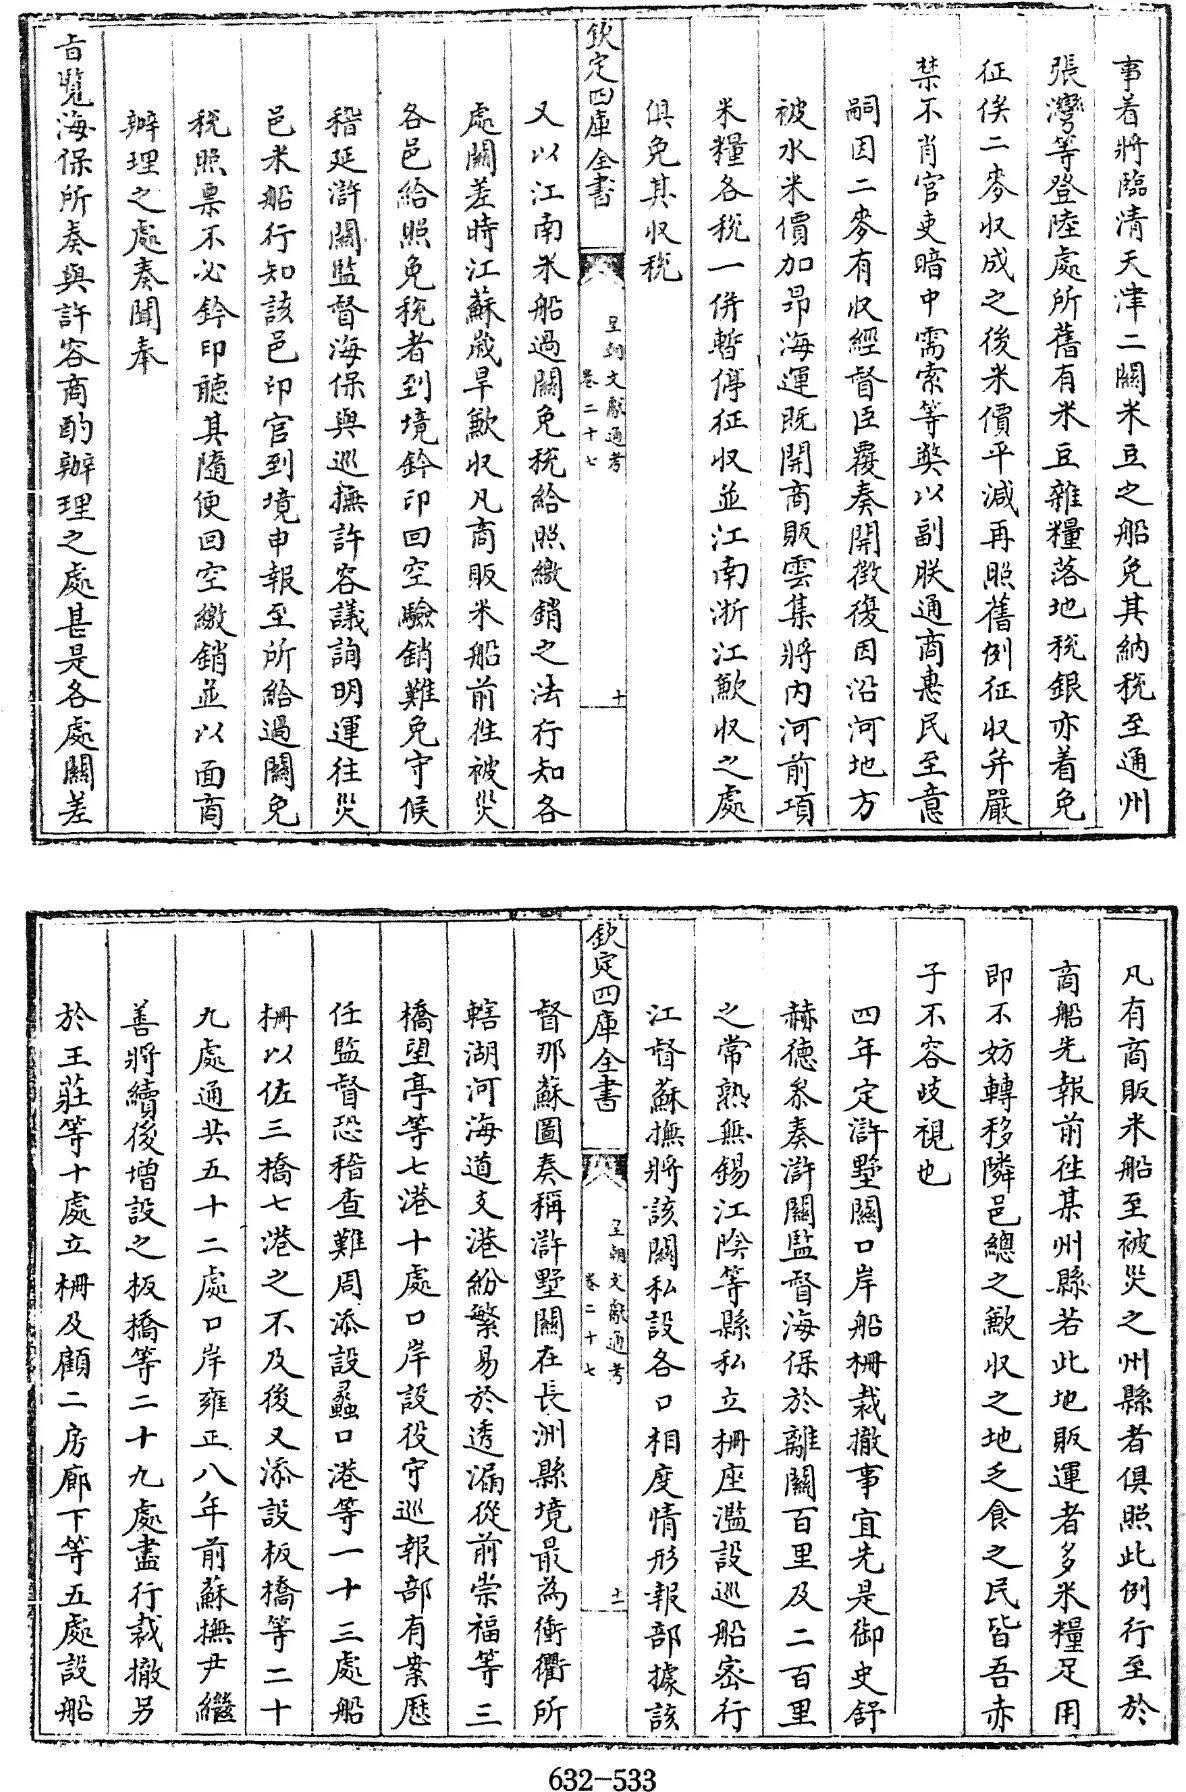 事着將臨清天津二關米豆之船免其納稅至通州
張灣等登陸處所舊有米豆雜糧落地稅銀亦着免
征俟二麥収成之後米價平減再照舊例征収并嚴
禁不肖官吏暗中需索等弊以副朕通商惠民至意
嗣因二麥有収經督臣覆奏開徵復因沿河地方
被水米價加昻海運既開商販雲集將内河前項
米糧各稅一併暫停征収並江南浙江歉収之處
俱免其収稅
欽定四庫全書
皇朝文獻通考
卷二十七
十
又以江南米船過關免稅給照繳銷之法行知各
處關差時江蘇歲旱歉収凡商販米船前徃被災
各邑給照免稅者到境鈐印回空驗銷難免守候
稽延滸關監督海保與巡撫許容議詢明運往災
邑米船行知該邑印官到境申報至所給過關免
稅照票不必鈐印聽其隨便回空繳銷並以面商
辦理之處奏聞奉
㫖覽海保所奏與許容商酌辦理之處甚是各處關差
凡有商販米船至被災之州縣者俱照此例行至於
商船先報前徃某州縣若此地販運者多米糧足用
即不妨轉移隣邑總之歉収之地乏食之民皆吾赤
子不容歧視也
四年定滸墅關口岸船柵裁撤事宜先是御史舒
赫德叅奏滸關監督海保於離關百里及二百里
之常熟無錫江陰等縣私立柵座濫設巡船宻行
江督蘇撫將該關私設各口相度情形報部據該
欽定四庫全書
皇朝文獻通考
卷二十七
十一
督那蘇圖奏稱滸墅關在長洲縣境最為衝衢所
轄湖河海道支港紛繁易於透漏從前崇福等三
橋望亭等七港十處口岸設役守巡報部有案歷
任監督恐稽查難周添設蠡口港等一十三處船
柵以佐三橋七港之不及後又添設板橋等二十
九處通共五十二處口岸雍正八年前蘇撫尹繼
善將續後增設之板橋等二十九處盡行裁撤另
於王莊等十處立柵及顧二房廊下等五處設船
632-533